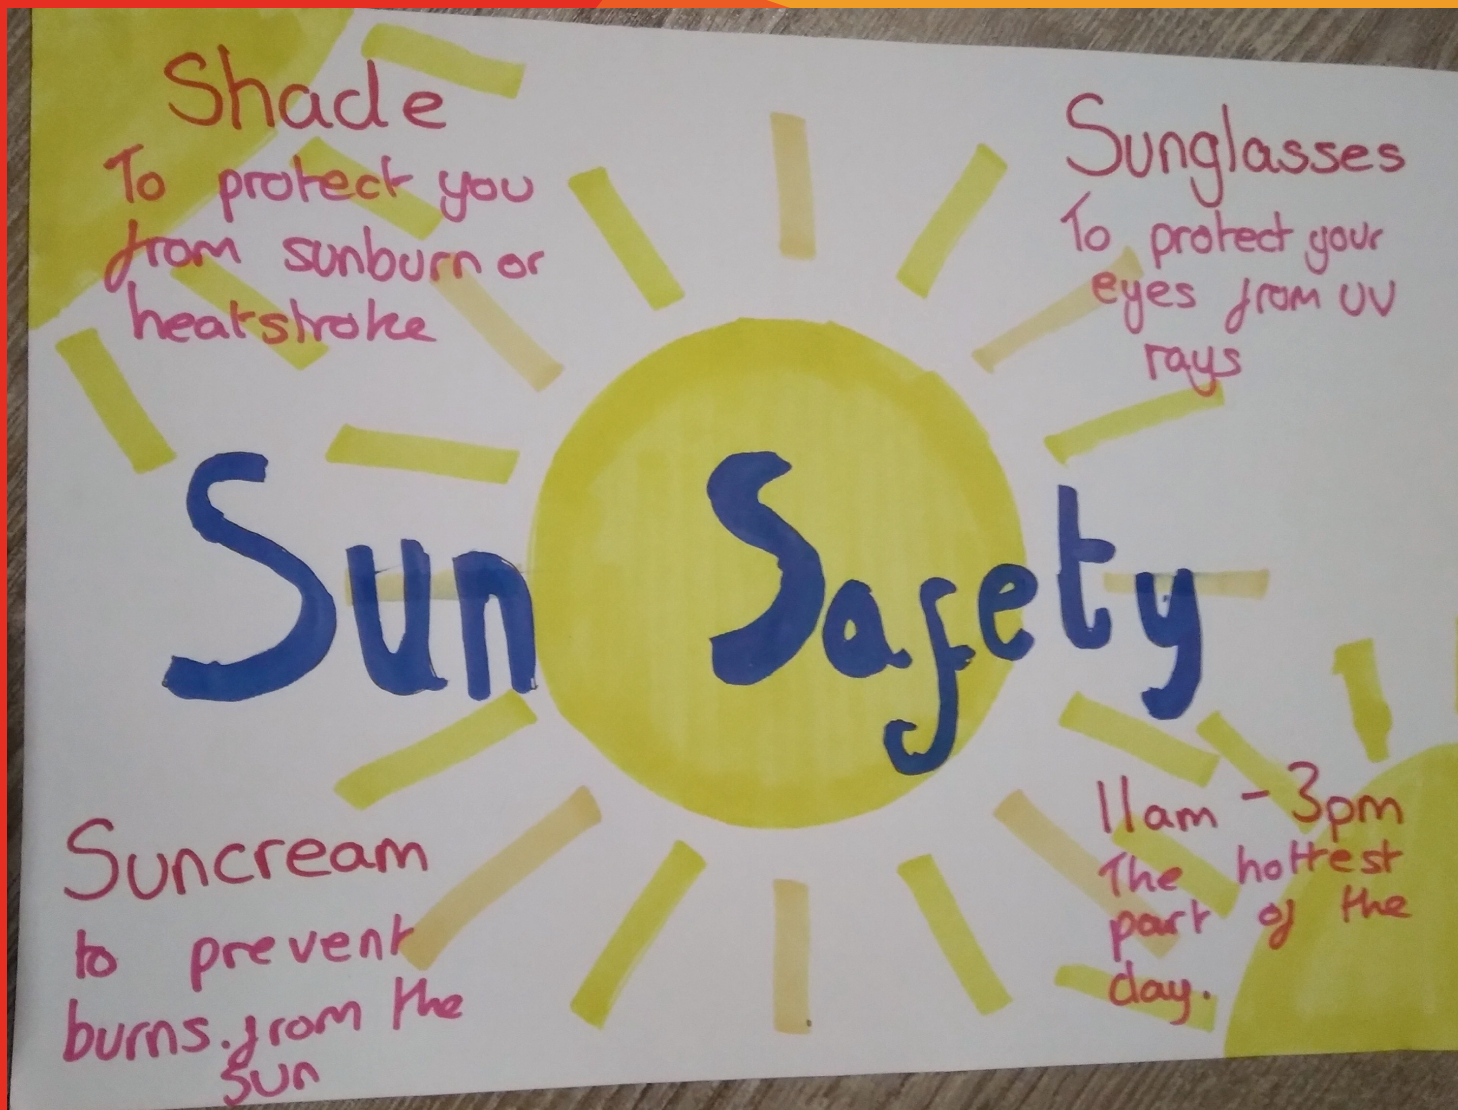 Shade
To protect you
from sunburn or
heatstroke
Sunglasses
To protect your
eyes from UV
rays
Sun Safety
Suncream
to prevent
burns. from the
sun
11am - 3pm
The hottest
part of the
day.